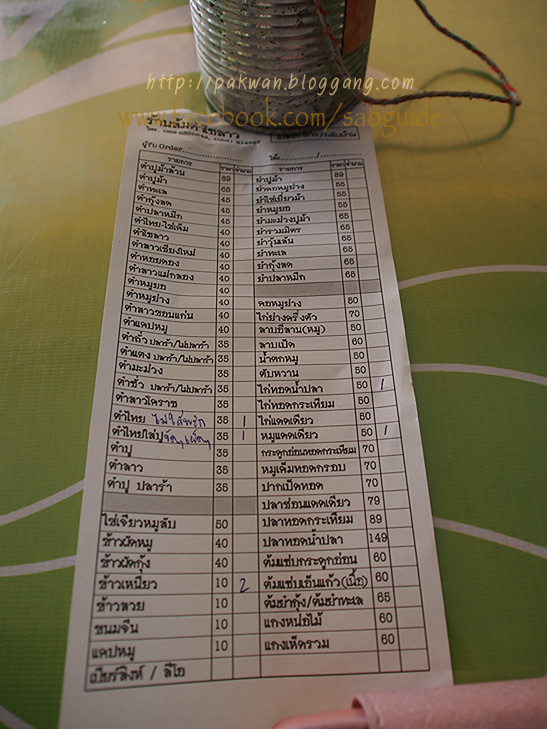 http://pakwan.bloggang.com
www.facebook.com/saoguide
ผู้รับ Order
รายการ ราคา จำนวน รายการ ราคา จำนวน
ตำปูม้าล้วน 89 ยำปูม้า 65
ตำปูม้า 65 ยำคอหมูย่าง 55
ตำทะเล 65 ยำไข่เยี่ยวม้า 55
ตำกุ้งสด 45 ยำหมูยอ 55
ตำปลาหมึก 45 ยำมะม่วงปูม้า 65
ตำไทย-ไข่เค็ม 45 ยำรวมมิตร 65
ตำไซลาว 40 ยำวุ้นเส้น 65
ตำลาวเชียงใหม่ 40 ยำทะเล 65
ตำหอยดอง 40 ยำกุ้งสด 65
ตำลาวแม่กลอง 40 ยำปลาหมึก 65
ตำหมูยอ 40
ตำหมูย่าง 40 คอหมูย่าง 50
ตำลาวขอนแก่น 40 ไก่ย่างครึ่งตัว 70
ตำแคปหมู 40 ลาบอีสาน(หมู) 50
ตำถั่ว ปลาร้า/ไม่ปลาร้า 35 ลาบเป็ด 60
ตำแตง ปลาร้า/ไม่ปลาร้า 35 น้ำตกหมู 50
ตำมะม่วง 35 ตับหวาน 50
ตำซั่ว ปลาร้า/ไม่ปลาร้า 35 ไก่ทอดน้ำปลา 50 1
ตำลาวโคราช 35 ไก่ทอดกระเทียม 50
ตำไทย ไม่ใส่พริก 35 1 ไก่แดดเดียว 50
ตำไทยใส่ปู 35 1 หมูแดดเดียว 50 1
ตำปู 35 กระดูกอ่อนทอดกระเทียม 70
ตำลาว 35 หมูเค็มทอดกรอบ 70
ตำปู ปลาร้า 35 ปากเป็ดทอด 70
ปลาช่อนแดดเดียว 79
ไข่เจียวหมูสับ 50 ปลาทอดกระเทียม 89
ข้าวผัดหมู 40 ปลาทอดน้ำปลา 149
ข้าวผัดกุ้ง 40 ต้มแซ่บกระดูกอ่อน 60
ข้าวเหนียว 10 2 ต้มแซ่บเอ็นแก้ว(เนื้อ) 60
ข้าวสวย 10 ต้มยำกุ้ง/ต้มยำทะเล 65
ขนมจีน 10 แกงหน่อไม้ 60
แคปหมู 10 แกงเห็ดรวม 60
เบียร์สิงห์ / ลีโอ